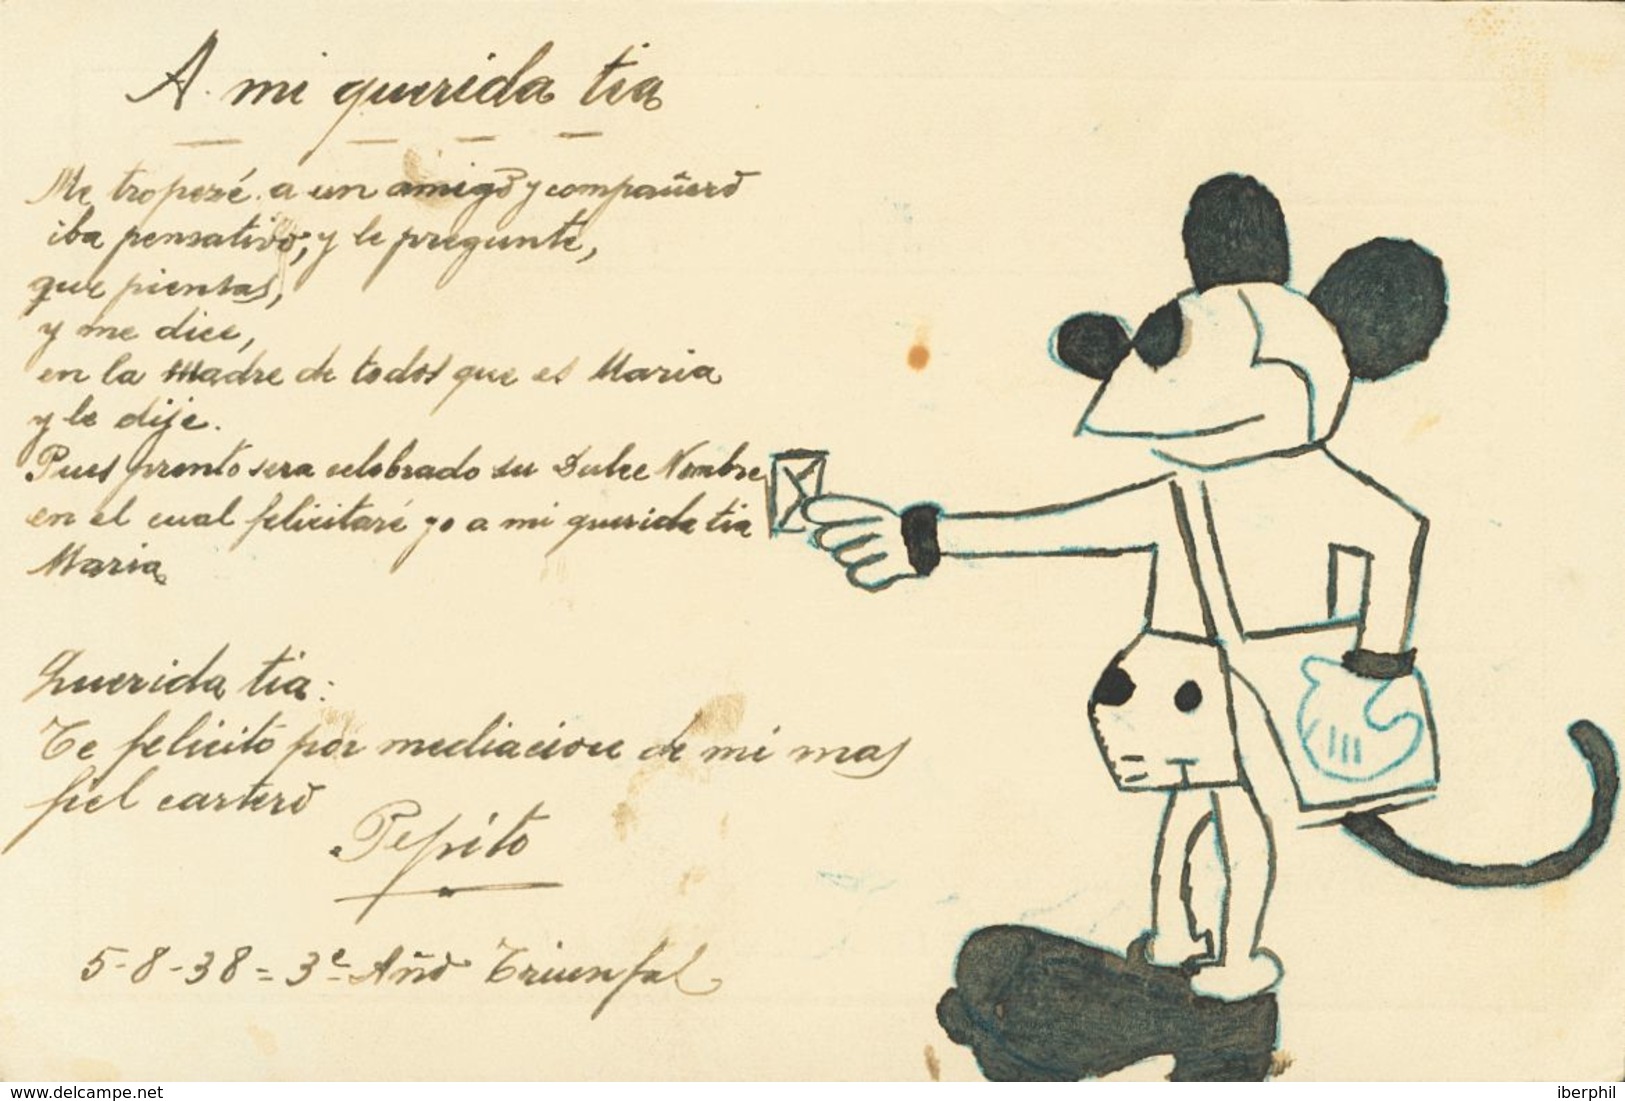 A mi querida tia
Me tropezé a un amigo y compañero
iba pensativo, y le pregunte,
que piensas,
y me dice,
en la Madre de todos que es Maria
y le dije.
Pues pronto sera celebrado su Dulce Nombre
en el cual felicitaré yo a mi querida tia
Maria
Querida tia:
Te felicito por mediacion de mi mas
fiel cartero
Pepito
5-8-38=3e Año Triunfal
www.delcampe.net
iberphil